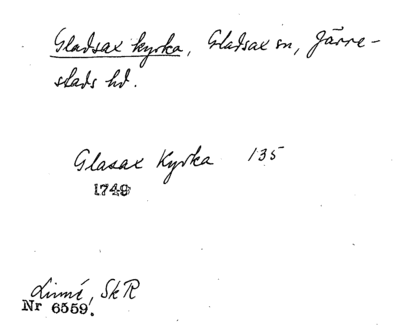 Gladsax kyrka, Gladsax sn, Järre-
stads hd.
Glasax Kyrka 135
1749
Linné, SkR
Nr 6559.